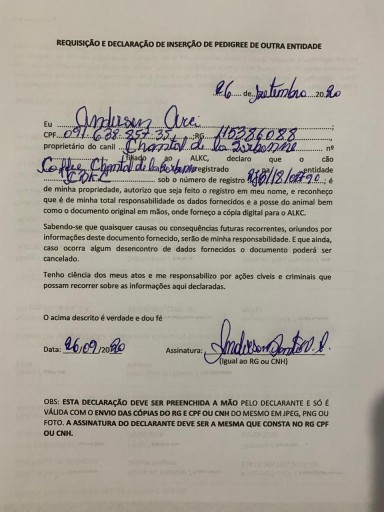 REQUISIÇÃO E DECLARAÇÃO DE INSERÇÃO DE PEDIGREE DE OUTRA ENTIDADE
26 de Setembro 2020
Eu Anderson
CPF 091.638.857-35 RG 110386088
proprietário do canil Chantal de la Sorbonne nº
filiado ao ALKC, declaro que o cão
Coffee Chantal de la Sorbonne registrado entidade
sob o número de registro é
de minha propriedade, autorizo que seja feito o registro em meu nome, e reconheço
que é de minha total responsabilidade os dados fornecidos e a posse do animal bem
como o documento original em mãos, onde forneço a cópia digital para o ALKC.
Sabendo-se que quaisquer causas ou consequências futuras recorrentes, oriundos por
informações deste documento fornecido, serão de minha responsabilidade. E que ainda,
caso ocorra algum desencontro de dados fornecidos o documento poderá ser
cancelado.
Tenho ciência dos meus atos e me responsabilizo por ações cíveis e criminais que
possam recorrer sobre as informações aqui declaradas.
O acima descrito é verdade e dou fé
Data: 26/09/2020 Assinatura: Anderson
(Igual ao RG ou CNH)
OBS: ESTA DECLARAÇÃO DEVE SER PREENCHIDA A MÃO PELO DECLARANTE E SÓ É
VÁLIDA COM O ENVIO DAS CÓPIAS DO RG E CPF OU CNH DO MESMO EM JPEG, PNG OU
FOTO. A ASSINATURA DO DECLARANTE DEVE SER A MESMA QUE CONSTA NO RG CPF
OU CNH.